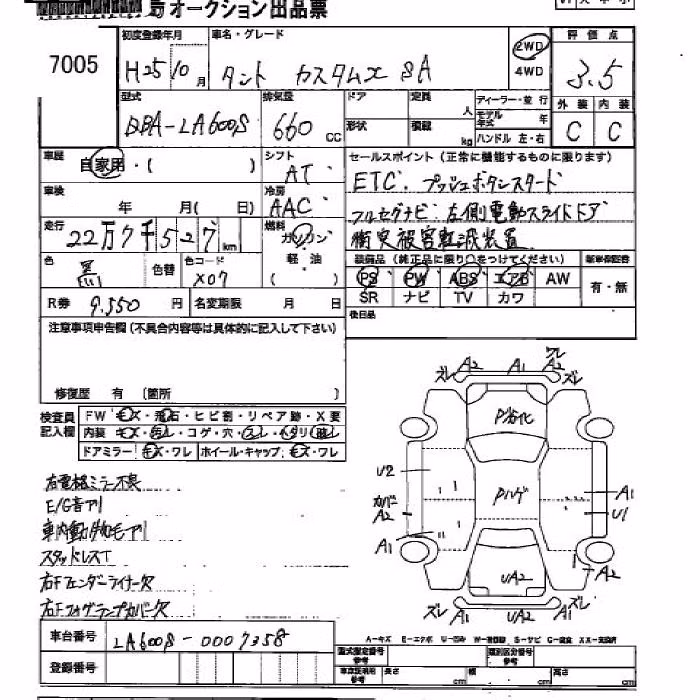 オークション出品票
7005
初度登録年月
H25 10 月
車名・グレード
タント カスタムX SA
2WD
4WD
評価点
3.5
外装 内装
C C
型式
DBA-LA600S
排気量
660 cc
ドア
形状
定員 人
積載 kg
ディーラー・並行
モデル年式 年
ハンドル 左・右
車歴
自家用・( )
シフト
AT
車検
年 月( 日)
冷房
AAC
走行
22万7千527 km
燃料
ガソリン
軽・油
( )
色
黒
色替
色コード
X07
R券 9.550 円
名変期限 月 日
セールスポイント(正常に機能するものに限ります)
ETC. プッシュボタンスタート
フルセグナビ. 左側電動スライドドア
衝突被害軽減装置
装備品(純正品に限り○をつけてください)
新車保証書
PS PW ABS エアB AW
SR ナビ TV カワ
有・無
後日品
注意事項申告欄(不具合内容等は具体的に記入して下さい)
修復歴 有 (箇所 )
検査員記入欄
FW キズ・飛石・ヒビ割・リペア跡・X要
内装 キズ・汚レ・コゲ・穴・スレ・ヘタリ
ドアミラー キズ・ワレ ホイール・キャップ キズ・ワレ
右電格ミラー不良
E/G音アリ
車内動物毛アリ
スタッドレスT
右Fフェンダーライナー欠
右Fフォグランプカバー欠
ズレ A2 A1 ワレ A2 ズレ
P劣化
U2
Pハゲ
カバー
A2
A1
A1
U1
A2
UA2
ズレ A1 UA2 A1 ズレ
車台番号 LA600S-0007358
登録番号
A=キズ E=エクボ
型式指定番号 参考
類別区分番号 参考
車庫証明用 参考
長さ cm 幅 cm 高さ cm